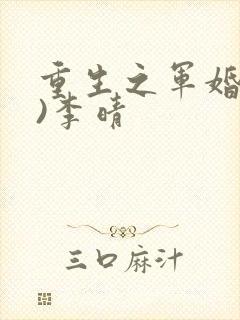 重生之军婚
)李晴
三口麻汁